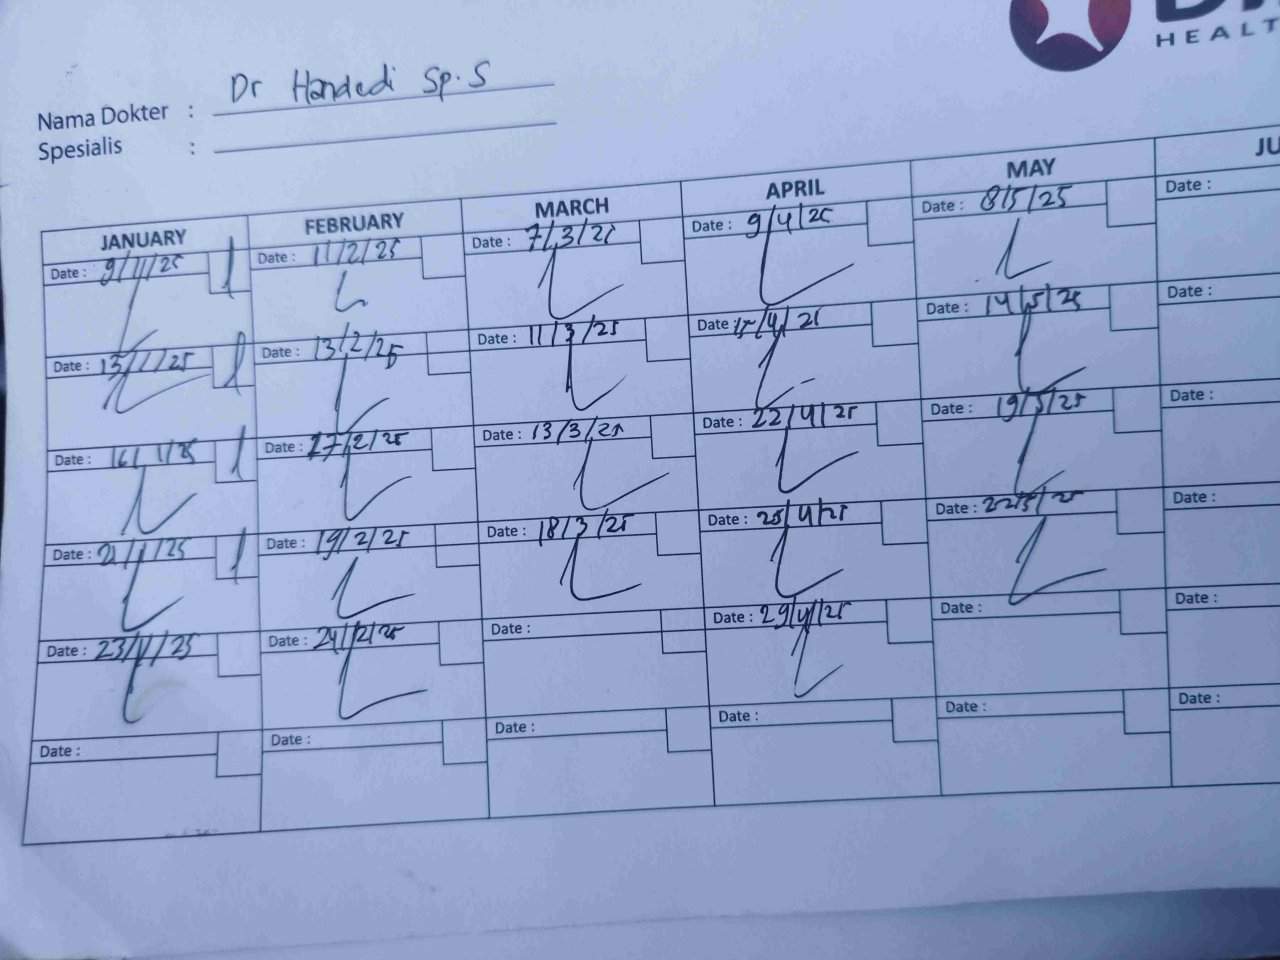 HEALT
Dr Handedi Sp.S
Nama Dokter :
Spesialis :
JANUARY FEBRUARY MARCH APRIL MAY
Date : 9/1/25 Date : 11/2/25 Date : 7/3/25 Date : 9/4/25 Date : 8/5/25 Date :
Date : 13/1/25 Date : 13/2/25 Date : 11/3/25 Date : 15/4/25 Date : 14/5/25 Date :
Date : 16/1/25 Date : 17/2/25 Date : 13/3/25 Date : 22/4/25 Date : 19/5/25 Date :
Date : 21/1/25 Date : 19/2/25 Date : 18/3/25 Date : 25/4/25 Date : 22/5/25 Date :
Date : 23/1/25 Date : 24/2/25 Date : Date : 29/4/25 Date : Date :
Date : Date : Date : Date : Date : Date :